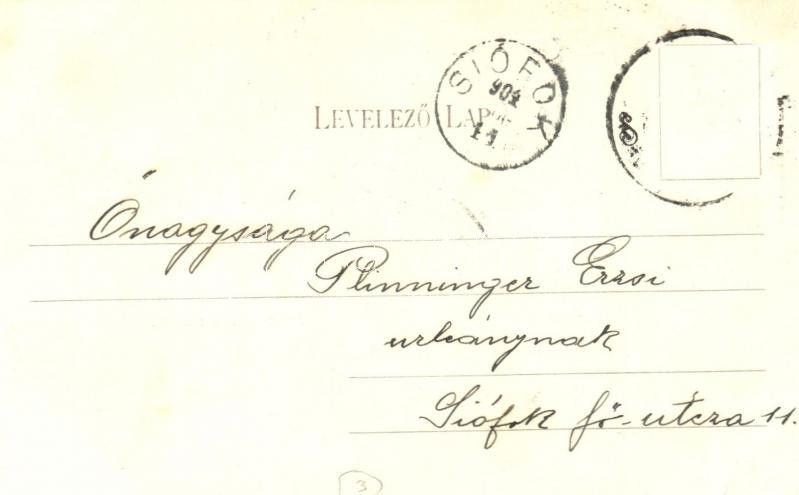 SIÓFOK
904
11
LEVELEZŐ LAP
Őnagysága
Plinninger Erzsi
urleánynak
Siófok fő-utcza 11.
3